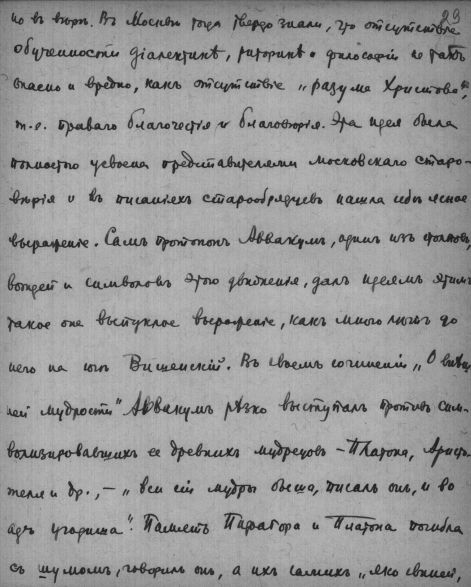 29
но въ вѣрѣ. Въ Москвѣ тогда твердо знали, что отсутствіе
обученности діалектикѣ, риторикѣ и философіи не такъ
опасно и вредно, какъ отсутствіе „разума Христова",
т.е. праваго благочестія и благовѣрія. Эта идея была
полностью усвоена представителями московскаго старо-
вѣрія и въ писаніяхъ старообрядцевъ нашла себѣ ясное
выраженіе. Самъ протопопъ Аввакумъ, одинъ изъ столповъ,
вождей и символовъ этого движенія, далъ идеямъ этимъ
такое же выпуклое выраженіе, какъ много лѣтъ до
него на югѣ Вишенскій. Въ своемъ сочиненіи „О внѣш-
ней мудрости" Аввакумъ рѣзко выступалъ противъ сим-
волизировавшихъ ее древнихъ мудрецовъ – Платона, Аристо-
теля и др., – „вси сіи мудры быша, писалъ онъ, и во
адъ угодиша". Память Пифагора и Платона погибла
съ шумомъ, говорилъ онъ, а ихъ самихъ „яко свиней,